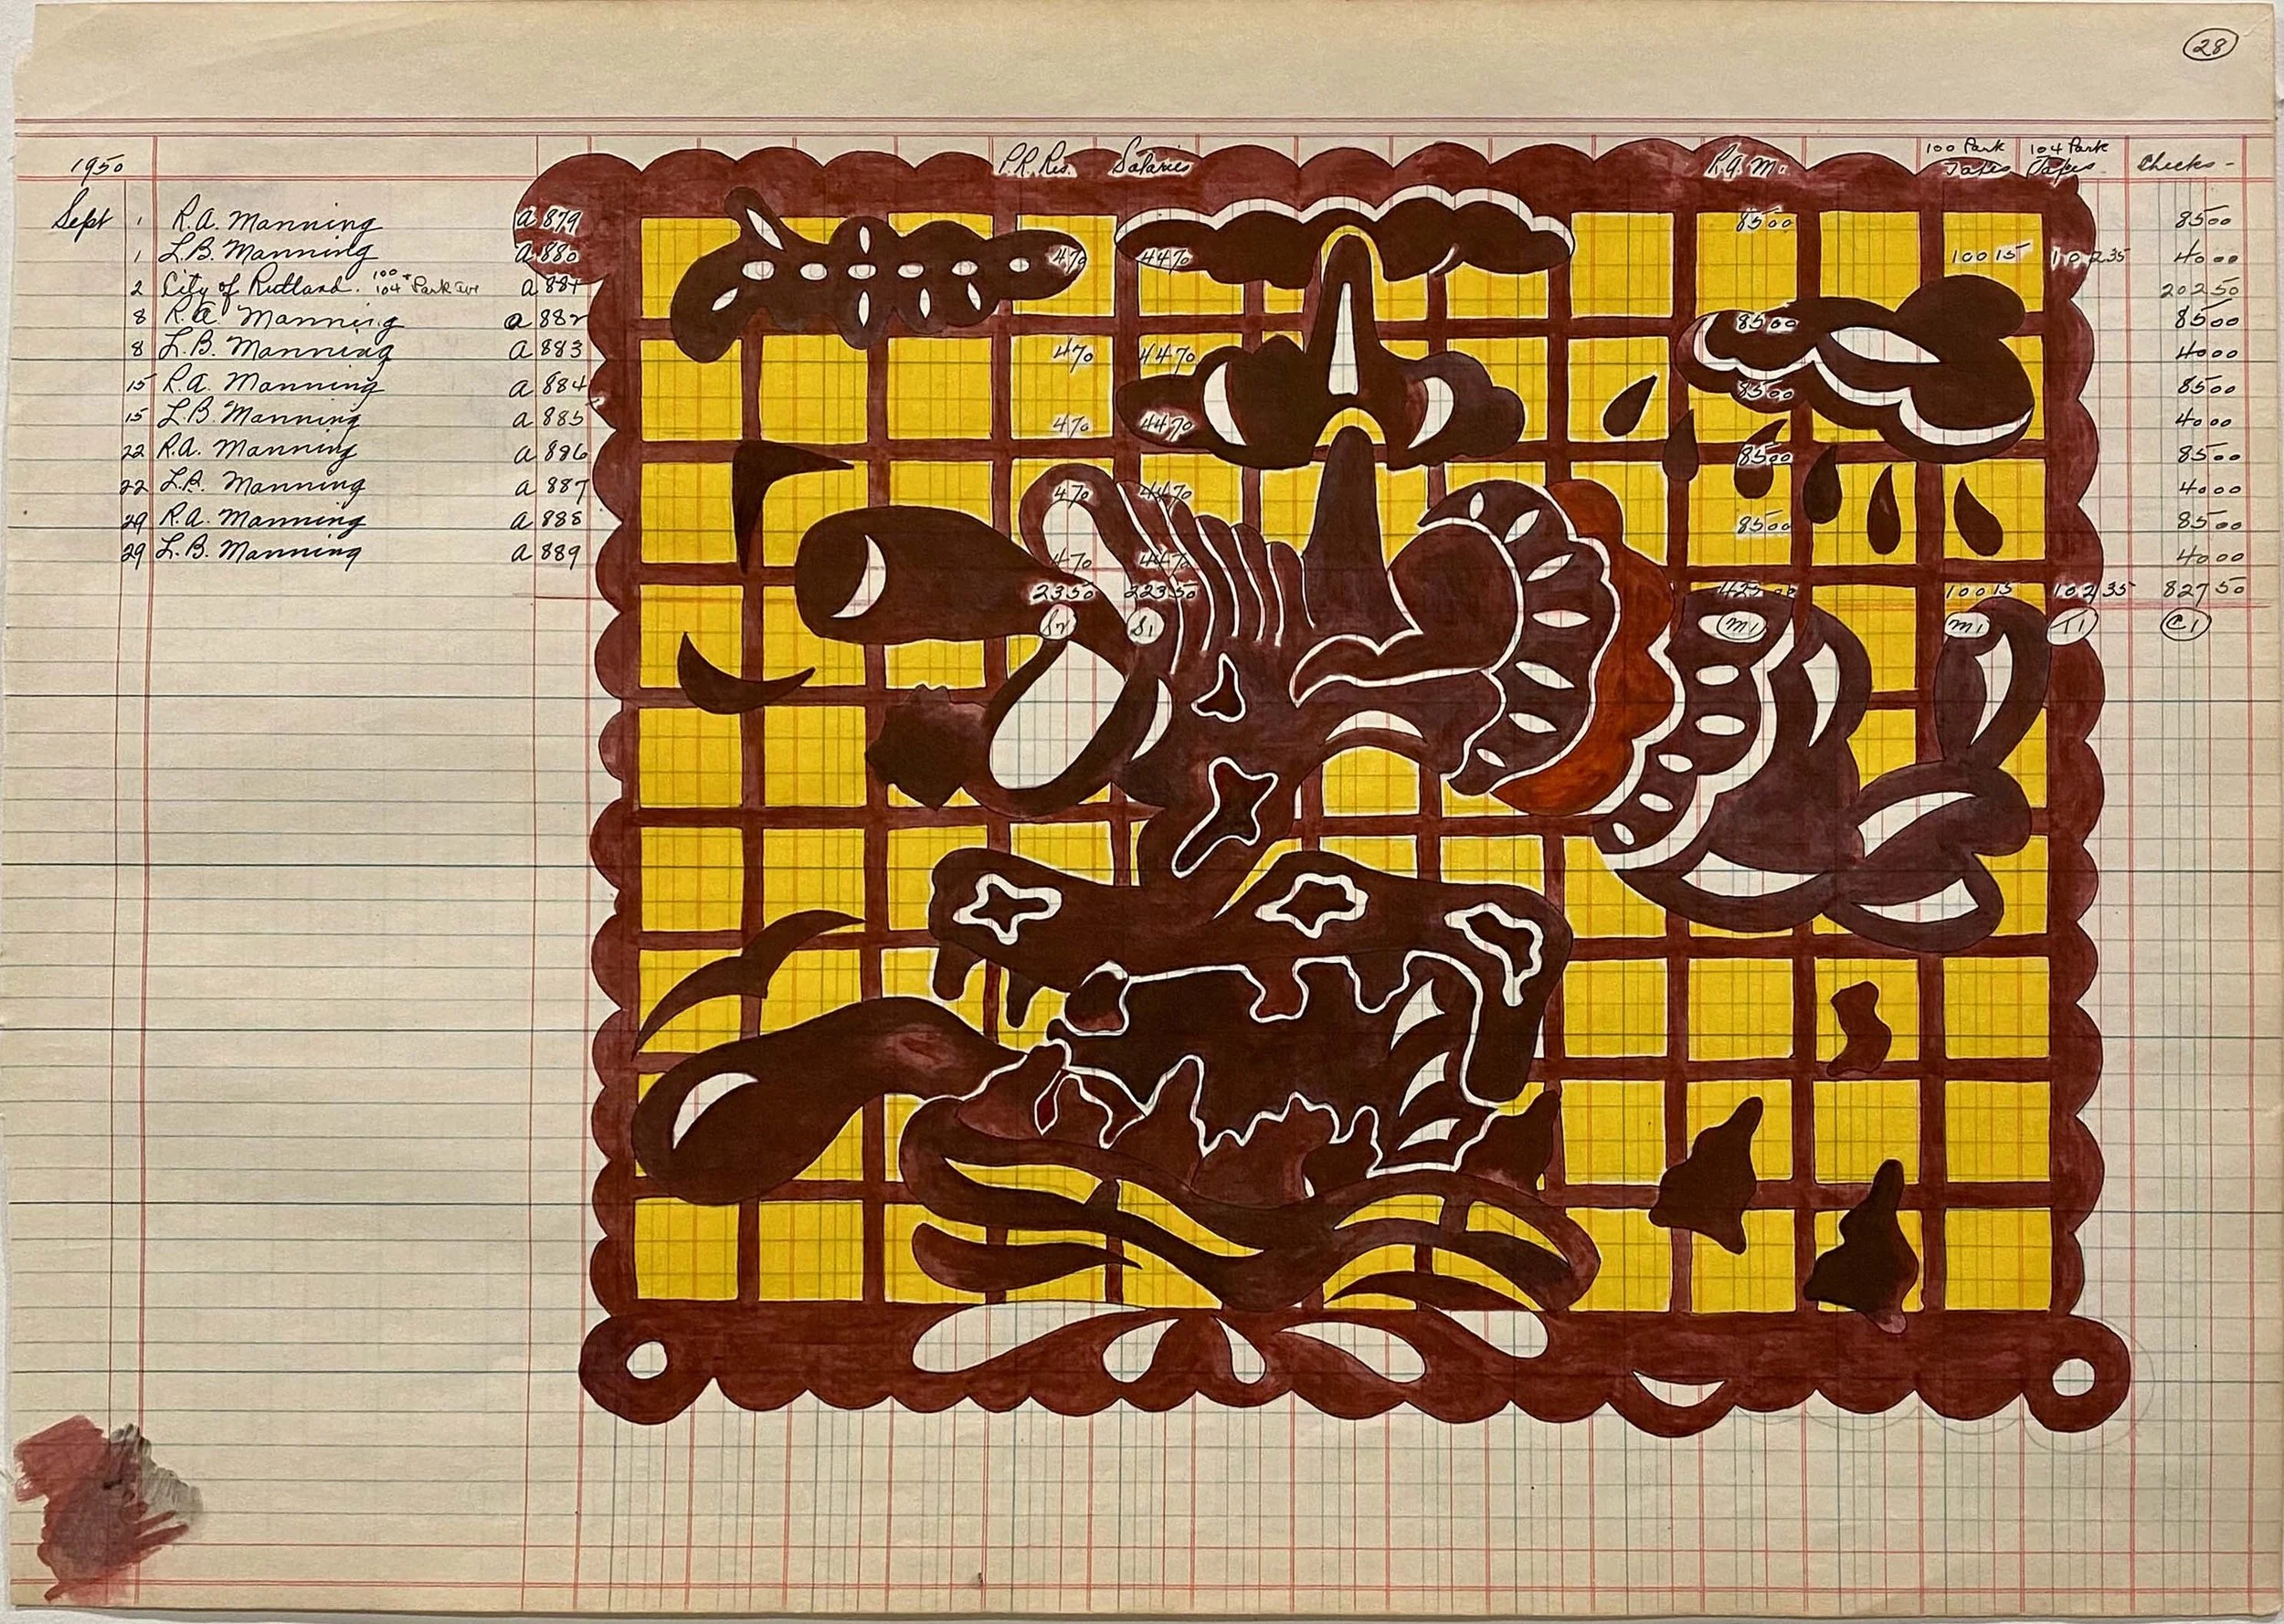 28
1950 P.R. Res. Salaries R.A.M. 100 Park Taxes 104 Park Taxes Checks -
Sept 1 R.A. Manning a 879 8500 8500
1 L.B. Manning a 880 470 4470 10015 10235 4000
2 City of Rutland. 100 + 104 Park Ave a 881 20250
8 R.A. Manning a 882 8500 8500
8 L.B. Manning a 883 470 4470 4000
15 R.A. Manning a 884 8500 8500
15 L.B. Manning a 885 470 4470 4000
22 R.A. Manning a 886 8500 8500
22 L.B. Manning a 887 470 4470 4000
29 R.A. Manning a 888 8500 8500
29 L.B. Manning a 889 470 4470 4000
2350 22350 42500 10015 10235 82750
S2 S1 M1 M1 T1 C1